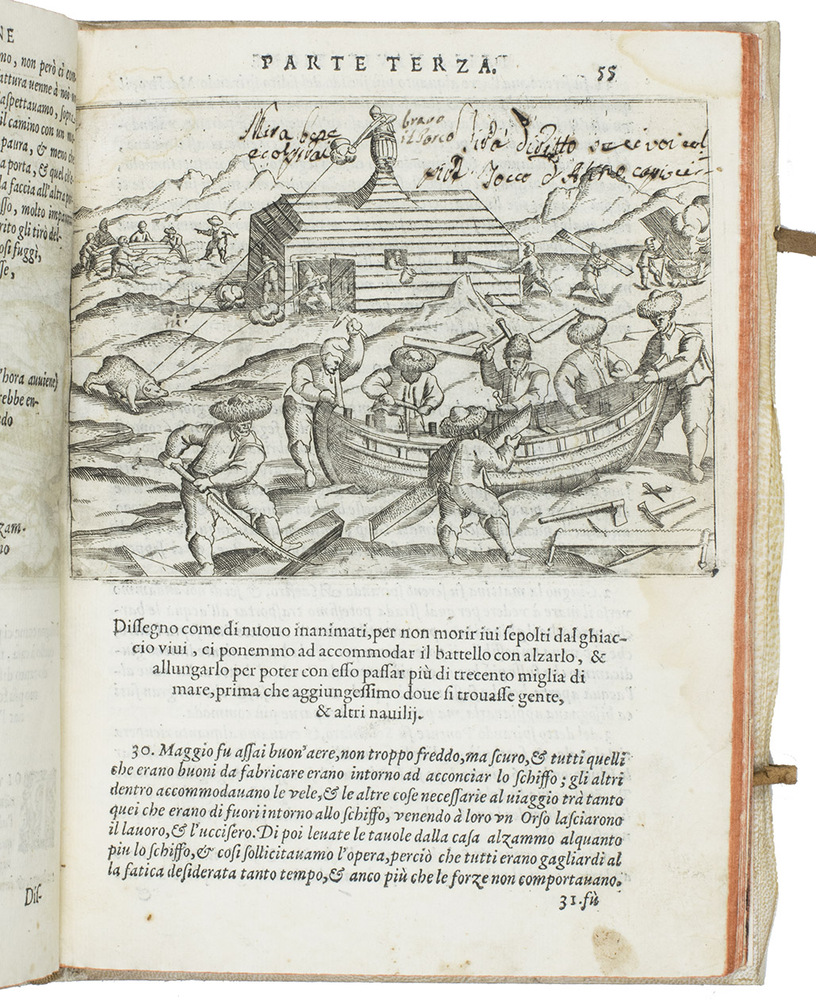 NE
no, non però ci
attura venne à noi
aſpettauamo,
il camino con un
paura, & meno che
a porta, & quel che
la faccia all'altra
ſſo, molto
rito gli tirò del-
oſi fuggì,
ſſe,
'hora auuiene)
rebbe en-
ndo
zam-
no
Diſ-
PARTE TERZA.
55
Mira bene
brauo
il Porco
Diſſegno come di nuouo inanimati, per non morir iui ſepolti dal ghiac-
cio viui, ci ponemmo ad accommodar il battello con alzarlo, &
allungarlo per poter con eſſo paſſar più di trecento miglia di
mare, prima che aggiungeſſimo doue ſi trouaſſe gente,
& altri nauilij.
30. Maggio fu aſſai buon'aere, non troppo freddo, ma ſcuro, & tutti quelli
che erano buoni da fabricare erano intorno ad acconciar lo ſchiffo; gli altri
dentro accommodauano le vele, & le altre coſe neceſſarie al uiaggio trà tanto
quei che erano di fuori intorno allo ſchiffo, venendo à loro vn Orſo laſciarono
il lauoro, & l'ucciſero. Di poi leuate le tauole dalla caſa alzammo alquanto
piu lo ſchiffo, & coſi ſollicitauamo l'opera, perciò che tutti erano gagliardi al
la fatica deſiderata tanto tempo, & anco più che le forze non comportauano.
31. fù